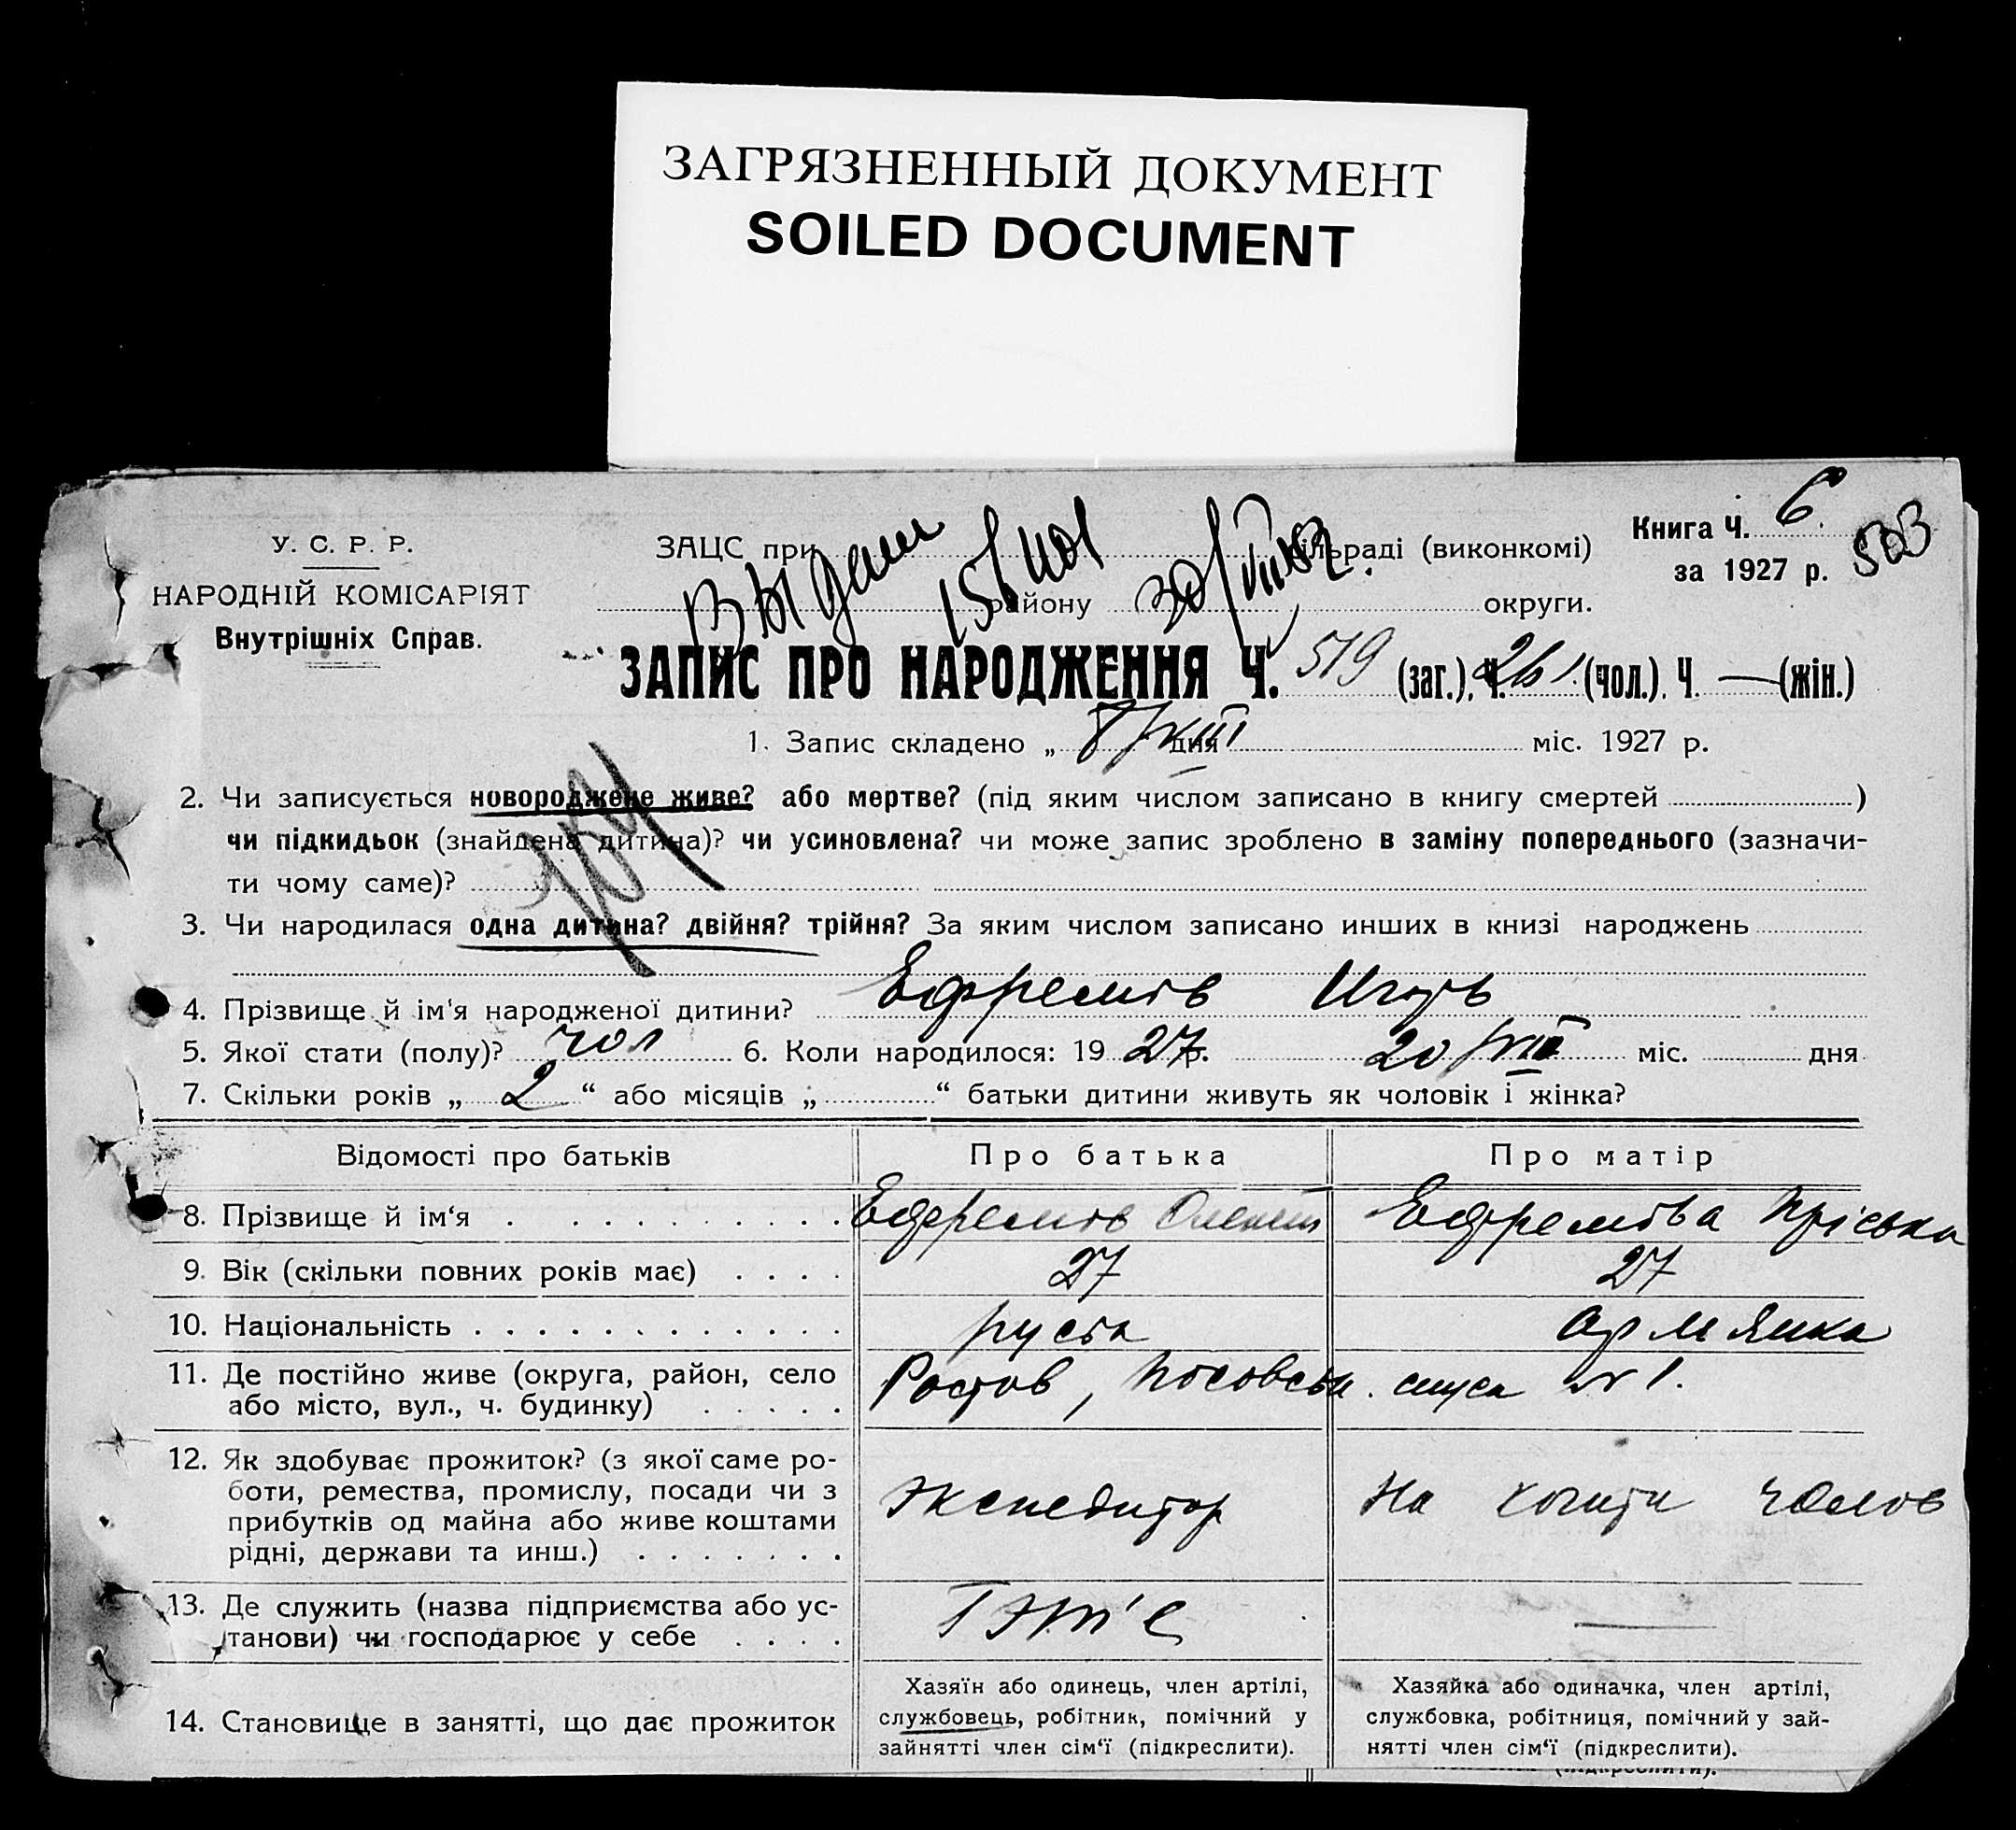 ЗАГРЯЗНЕННЫЙ ДОКУМЕНТ
SOILED DOCUMENT
Книга Ч. 6
за 1927 р.
У. С. Р. Р.
НАРОДНІЙ КОМІСАРІЯТ
Внутрішніх Справ.
ЗАЦС при сільраді (виконкомі)
району округи.
ЗАПИС ПРО НАРОДЖЕННЯ Ч. 519 (заг.), Ч. (чол.). Ч. — (жін.)
1. Запис складено „ 8/VIII дня міс. 1927 р.
2. Чи записується новороджене живе? або мертве? (під яким числом записано в книгу смертей )
чи підкидьок (знайдена дитина)? чи усиновлена? чи може запис зроблено в заміну попереднього (зазначи-
ти чому саме)?
3. Чи народилася одна дитина? двійня? трійня? За яким числом записано инших в книзі народжень
4. Прізвище й ім‘я народженої дитини? Ефремов Игорь
5. Якої стати (полу)? чол 6. Коли народилося: 1927 р. 20/VII міс. дня
7. Скільки років „ 2 “ або місяців „ “ батьки дитини живуть як чоловік і жінка?
Відомості про батьків Про батька Про матір
8. Прізвище й ім‘я Ефремов Ефремова Пріська
9. Вік (скільки повних років має) 27 27
10. Національність руська армянка
11. Де постійно живе (округа, район, село
або місто, вул., ч. будинку) Ростов, № 1.
12. Як здобуває прожиток? (з якої саме ро-
боти, ремества, промислу, посади чи з
прибутків од майна або живе коштами
рідні, держави та инш.) Экспедитор На кошти чолов
13. Де служить (назва підприємства або ус-
танови) чи господарює у себе —
14. Становище в занятті, що дає прожиток
Хазяїн або одинець, член артілі,
службовець, робітник, помічний у
зайнятті член сім‘ї (підкреслити).
Хазяйка або одиначка, член артілі,
службовка, робітниця, помічний у зай-
нятті член сім‘ї (підкреслити).